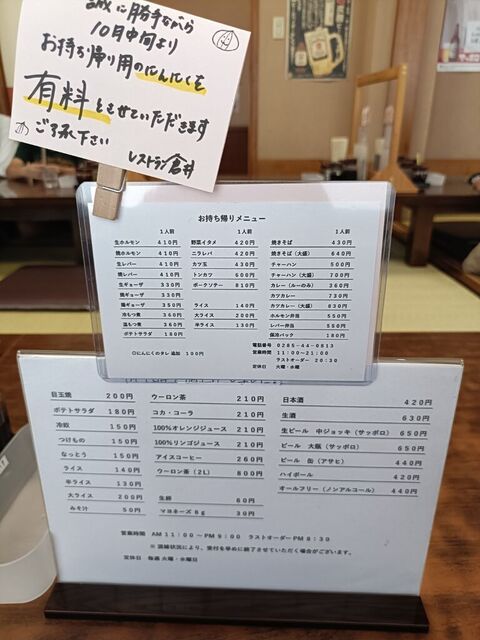 誠に勝手ながら
10月中旬より
お持ち帰り用のにんにくを
有料とさせていただきます
ご了承下さい
レストラン倉井
お持ち帰りメニュー
1人前 1人前 1人前
生ホルモン 410円 野菜イタメ 420円 焼きそば 430円
焼ホルモン 410円 ニラレバ 420円 焼きそば(大盛) 640円
生レバー 410円 カツ玉 430円 チャーハン 500円
焼レバー 410円 トンカツ 600円 チャーハン(大盛) 700円
生ギョーザ 330円 ポークソテー 810円 カレー(ルーのみ) 360円
焼ギョーザ 330円 カツカレー 730円
揚ギョーザ 350円 ライス 140円 カツカレー(大盛) 830円
冷もつ煮 360円 大ライス 200円 ホルモン弁当 550円
温もつ煮 360円 半ライス 130円 レバー弁当 550円
ポテトサラダ 180円 保冷パック 180円
□にんにくのタレ 追加 100円
電話番号 0285-44-0813
営業時間 11:00~21:00
ラストオーダー 20:30
定休日 火曜・水曜
目玉焼 200円 ウーロン茶 210円 日本酒 420円
ポテトサラダ 180円 コカ・コーラ 210円 生酒 630円
冷奴 150円 100%オレンジジュース 210円 生ビール 中ジョッキ(サッポロ) 650円
つけもの 150円 100%リンゴジュース 210円 ビール 大瓶(サッポロ) 650円
なっとう 150円 アイスコーヒー 260円 ビール 缶(アサヒ) 440円
ライス 140円 ウーロン茶(2L) 800円 ハイボール 420円
半ライス 130円 オールフリー(ノンアルコール) 440円
大ライス 200円 生卵 60円
みそ汁 50円 マヨネーズ8g 30円
営業時間 AM 11:00~PM 9:00 ラストオーダーPM 8:30
※混雑状況により、受付を早めに終了させていただく場合がございます。
定休日 毎週 火曜・水曜日